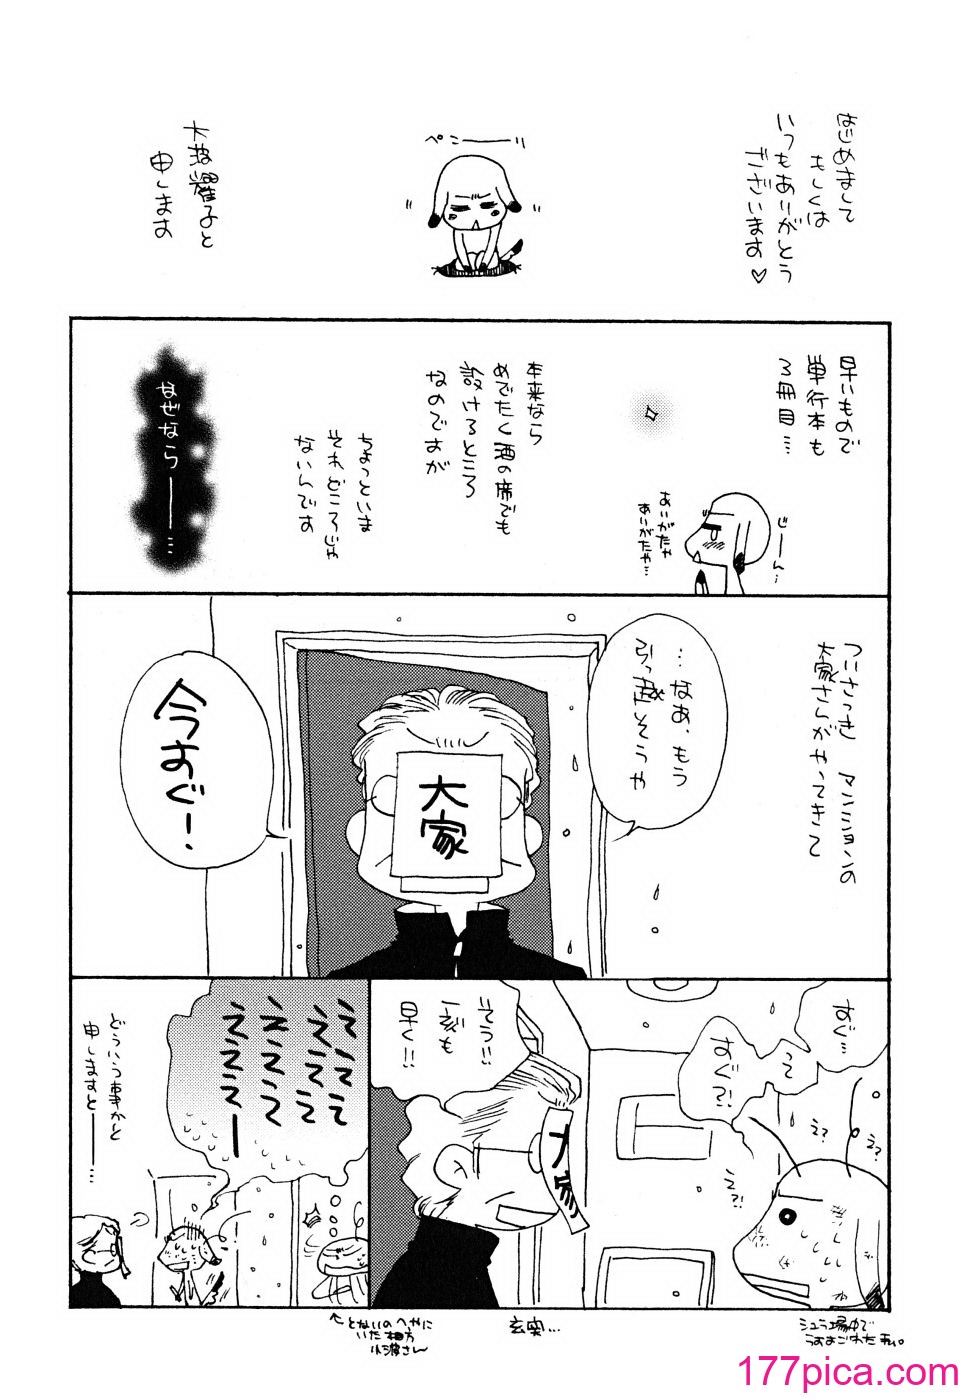 はじめまして
もしくは
いつもありがとう
ございます♡
ペこーーーり
大波耀子と
申します
早いもので
単行本も
3冊目…
じーーん…
ありがたや
ありがたや…
本来なら
めでたく酒の席でも
設けるところ
なのですが
ちょっといま
それどころじゃ
ないんです
なぜなら――…
ついさっき マンションの
大家さんがやってきて
…なあ、もう
引っ越そうや
大家
今すぐ!
すぐ…
って
すぐ?!
え??
え??
え?!
シュラ場中で
そう!!
一刻も
早く!!
大家
玄関…
えええ
ええええ
ええええ
えええーー
どういう事かと
申しますと――…
←となりのへやに
いた相方
小波さん
177pica.com